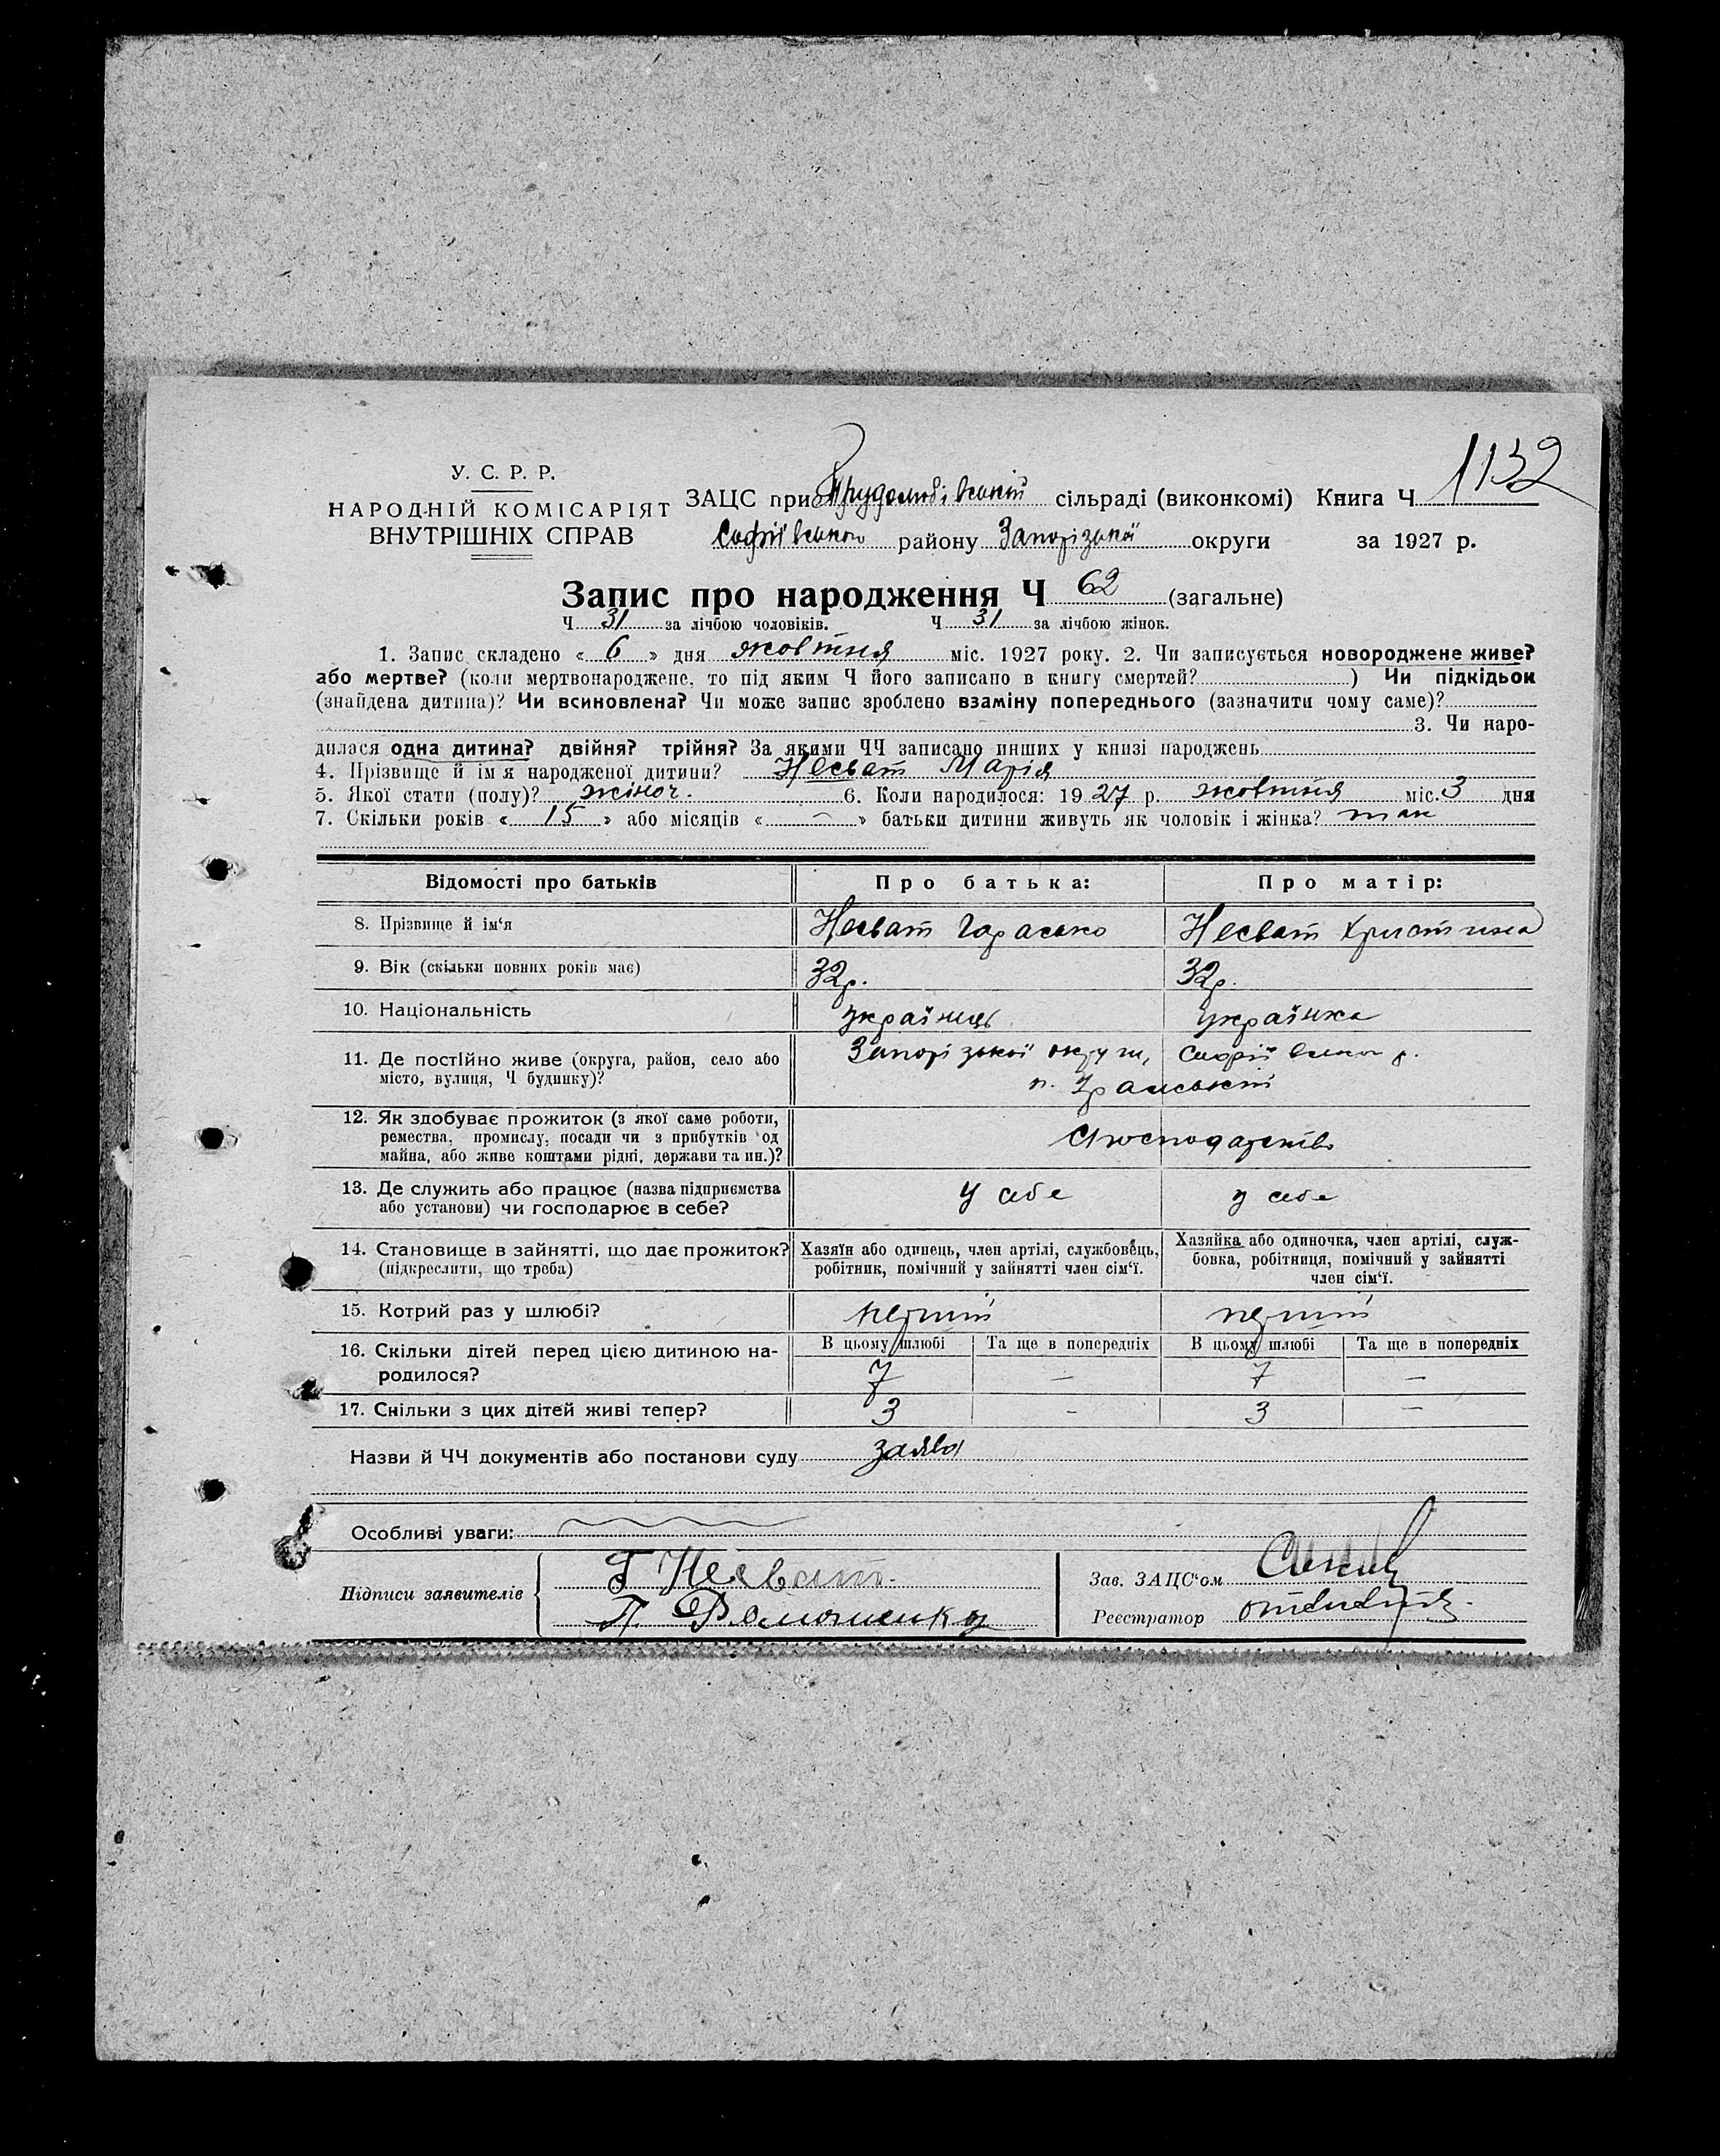 1132
У. С. Р. Р.
НАРОДНІЙ КОМІСАРІЯТ
ВНУТРІШНІХ СПРАВ
ЗАЦС при Трудолюбівській сільраді (виконкомі) Книга Ч
Софіївського району Запорізької округи за 1927 р.
Запис про народження Ч 62 (загальне)
Ч 31 за лічбою чоловіків. Ч 31 за лічбою жінок.
1. Запис складено « 6 » дня жовтня міс. 1927 року. 2. Чи записується новороджене живе?
або мертве? (коли мертвонароджене, то під яким Ч його записано в книгу смертей? ) Чи підкідьок
(знайдена дитина)? Чи всиновлена? Чи може запис зроблено взаміну попереднього (зазначити чому саме)?
3. Чи наро-
дилася одна дитина? двійня? трійня? За якими ЧЧ записано инших у книзі народжень
4. Прізвище й ім'я народженої дитини? Несват Марія
5. Якої стати (полу)? жіноч. 6. Коли народилося: 1927 р. жовтня міс. 3 дня
7. Скільки років « 15 » або місяців « — » батьки дитини живуть як чоловік і жінка? так
Відомості про батьків Про батька: Про матір:
8. Прізвище й ім'я Несват Гарасько Несват Христина
9. Вік (скільки повних років має) 32р. 32р.
10. Національність українець українка
11. Де постійно живе (округа, район, село або Запорізької округи, Софіївськ р.
місто, вулиця, Ч будинку)? п.
12. Як здобуває прожиток (з якої саме роботи,
ремества, промислу, посади чи з прибутків од
майна, або живе коштами рідні, держави та ин.)?
13. Де служить або працює (назва підприємства у себе у себе
або установи) чи господарює в себе?
14. Становище в зайнятті, що дає прожиток? Хазяїн або одинець, член артілі, службовець, Хазяйка або одиночка, член артілі, служ-
(підкреслити, що треба) робітник, помічний у зайнятті член сім'ї. бовка, робітниця, помічний у зайнятті
член сім'ї.
15. Котрий раз у шлюбі? перший перший
16. Скільки дітей перед цією дитиною на- В цьому шлюбі Та ще в попередніх В цьому шлюбі Та ще в попередніх
родилося? 7 — 7 —
17. Скільки з цих дітей живі тепер? 3 — 3 —
Назви й ЧЧ документів або постанови суду заява
Особливі уваги:
Підписи заявителів Г Несват
П.
Зав. ЗАЦС'ом
Реєстратор